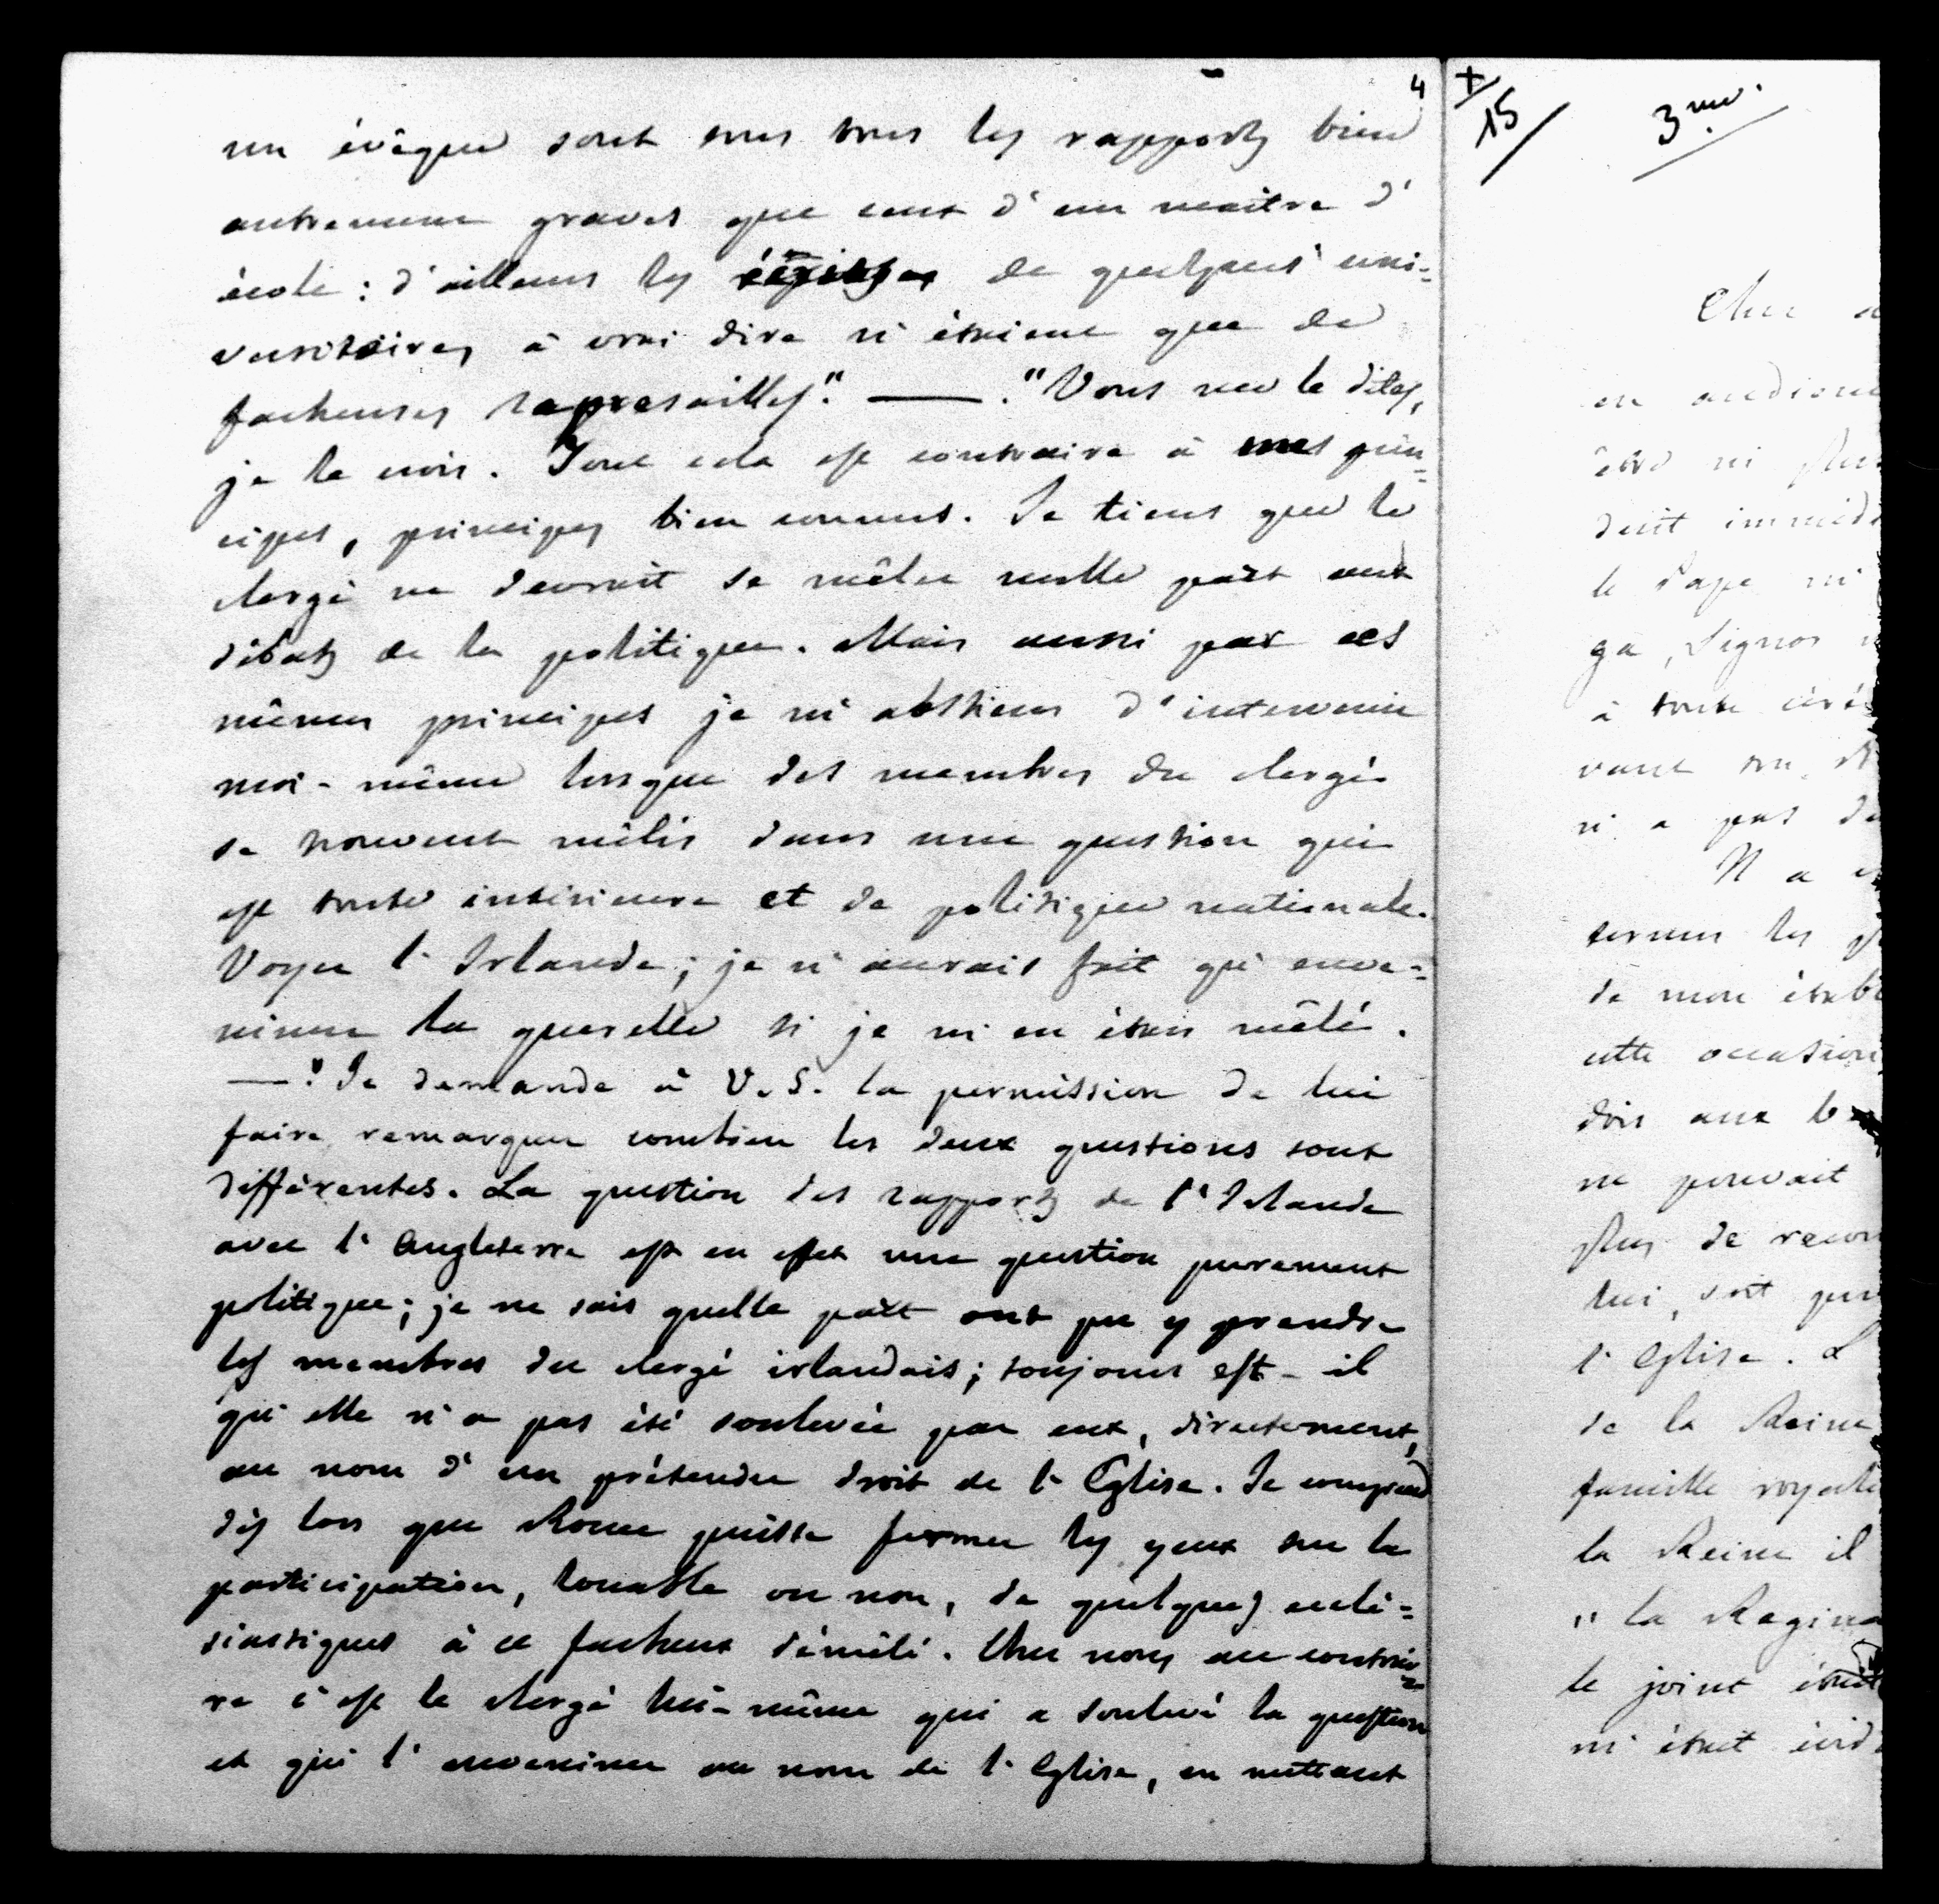 4
un évêque sont sous tous les rapports bien
autrement graves que ceux d'un maître d'
école : d'ailleurs les de quelques uni-
versitaires à vrai dire n'étaient que de
facheuses represailles". — . "Vous me le dites,
je le crois. Tout cela est contraire à mes prin-
cipes, principes bien connus. Je tiens que le
clergé ne devrait se mêler nulle part aux
débats de la politique. Mais aussi par ces
mêmes principes je m'abstiens d'intervenir
moi-même lorsque des membres du clergé
se trouvent mêlés dans une question qui
est toute intérieure et de politique nationale.
Voyez l'Irlande ; je n'aurais fait qu'enve-
nimer la querelle si je m'en étais mêlé.
— . "Je demande à V. S. la permission de lui
faire remarquer combien les deux questions sont
différentes. La question des rapports de l'Irlande
avec l'Angleterre est en effet une question purement
politique ; je ne sais quelle part ont pu y prendre
les membres du clergé irlandais ; toujours est-il
qu'elle n'a pas été soulevée par eux, directement,
au nom d'un prétendu droit de l'Eglise. Je comprend
dès lors que Rome puisse fermer les yeux sur la
participation, louable ou non, de quelques ecclé-
siastiques à ce facheux démêlé. Chez nous au contrai-
re c'est le clergé lui-même qui a soulevé la question
et qui l'envenime au nom de l'Eglise, en mettant
+
15
3
Cher
en audience
être
doit
le Pape
ga, Signor
à toute
vant
n'a pas
Il a
termes les
de mon
cette occasion
dois aux
ne pouvait
plus de
lui, soit
l'Eglise. L
de la Reine
famille royale
la Reine il
"la Regina
le joint
m'était